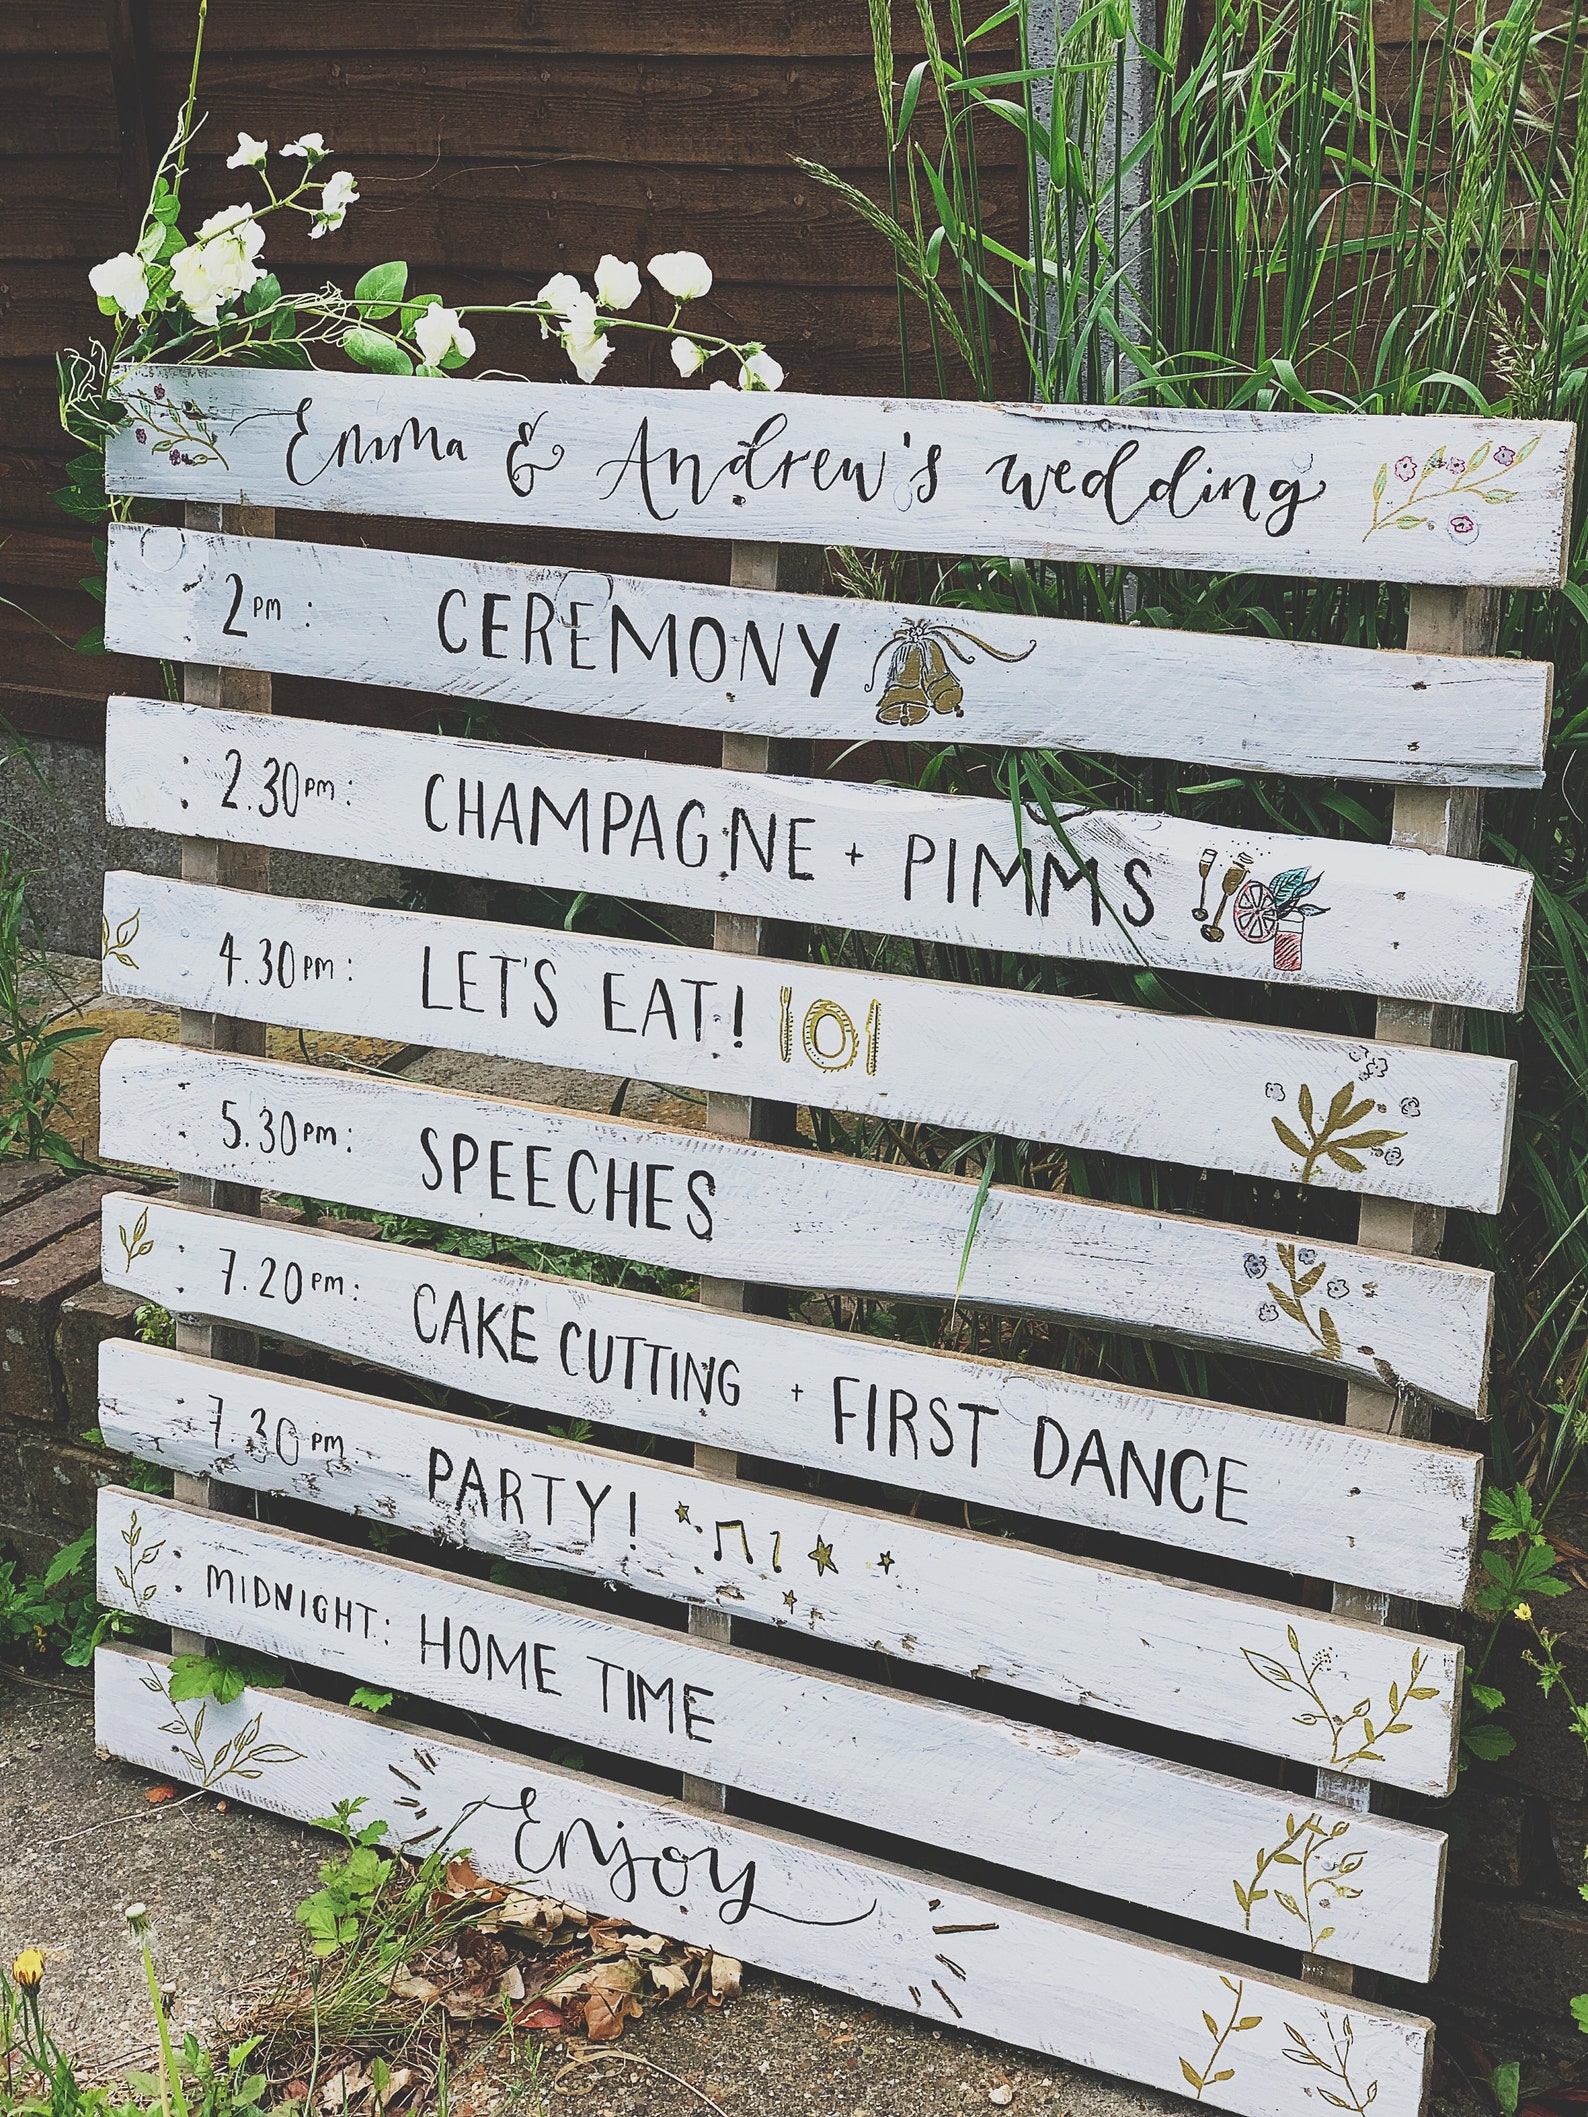 Emma & Andrew's wedding
2pm : CEREMONY
: 2.30pm: CHAMPAGNE + PIMMS
4.30pm: LET'S EAT!
5.30pm: SPEECHES
7.20pm: CAKE CUTTING + FIRST DANCE
7.30pm PARTY!
MIDNIGHT: HOME TIME
Enjoy